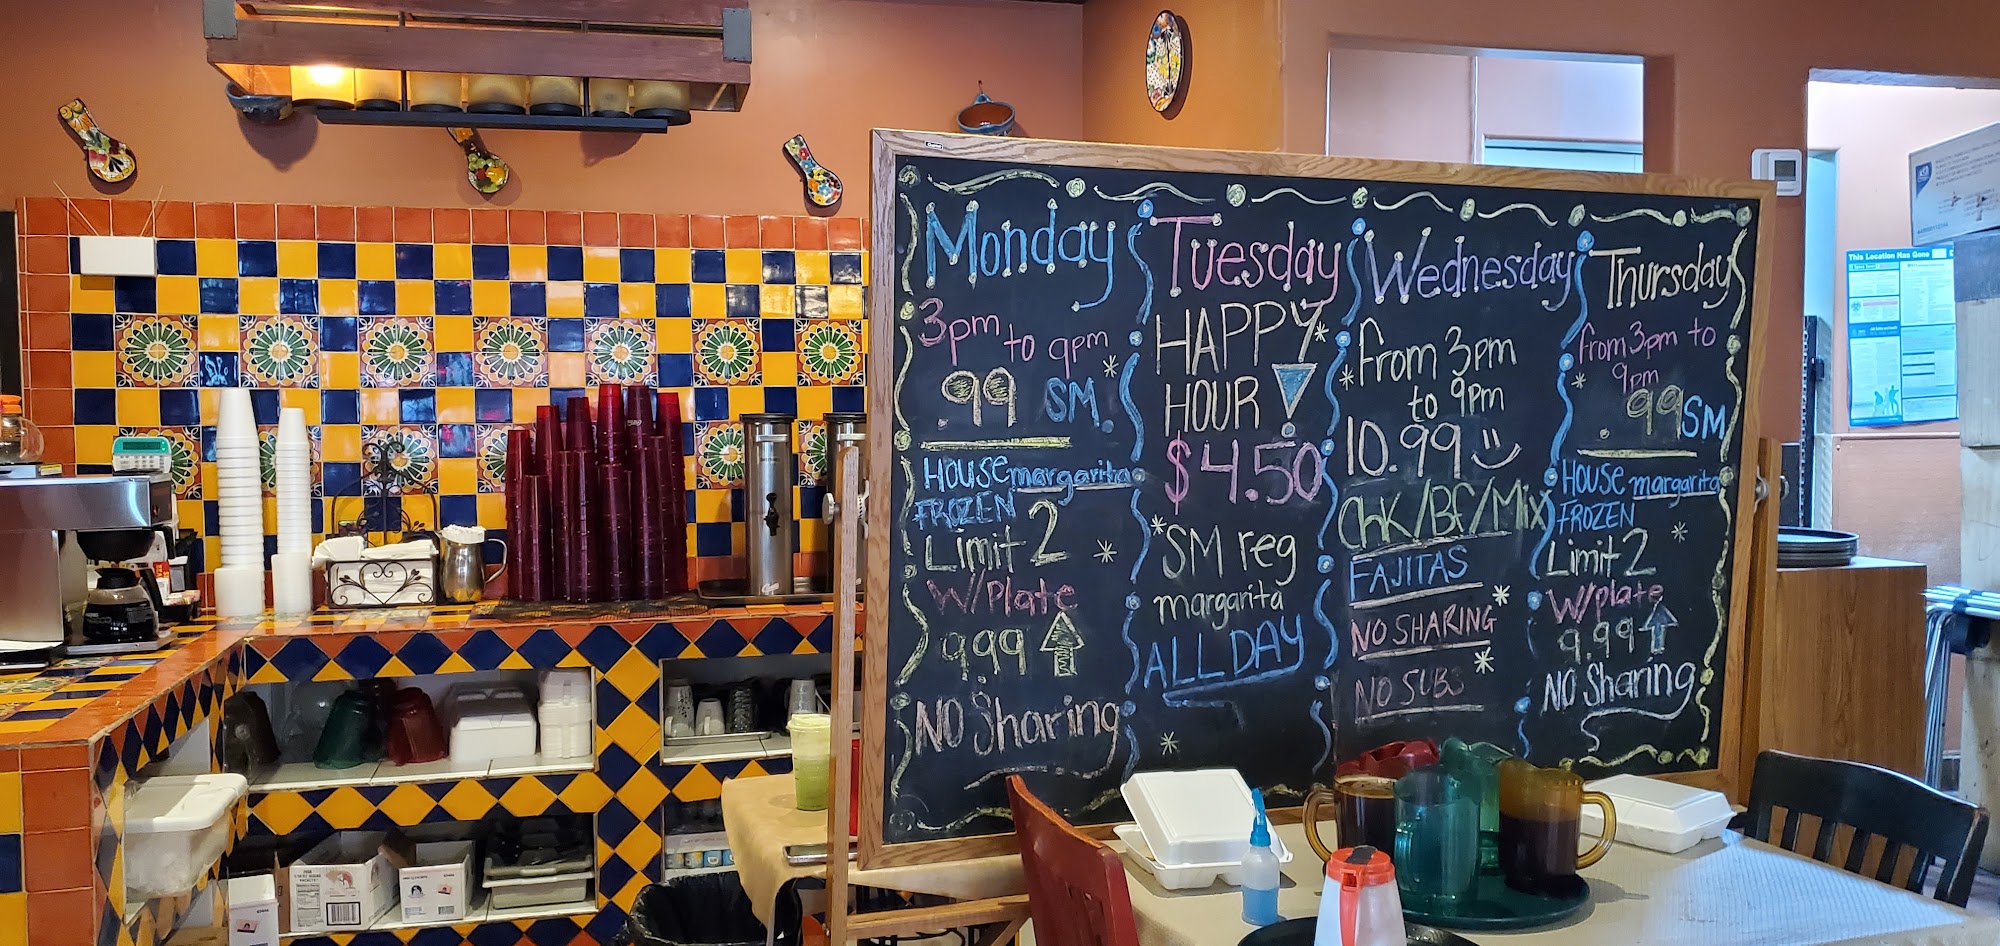 Monday
3pm to 9pm
.99 SM.
House margarita
FROZEN
Limit 2
W/Plate
9.99 ↑
NO Sharing
Tuesday
HAPPY
HOUR
$4.50
SM reg
margarita
ALL DAY
Wednesday
From 3pm
to 9pm
10.99
CHK/BF/Mix
FAJITAS
NO SHARING
NO SUBS
Thursday
from 3pm to
9pm
.99 SM
House margarita
FROZEN
Limit 2
W/plate
9.99 ↑
NO Sharing
This Location Has Gone